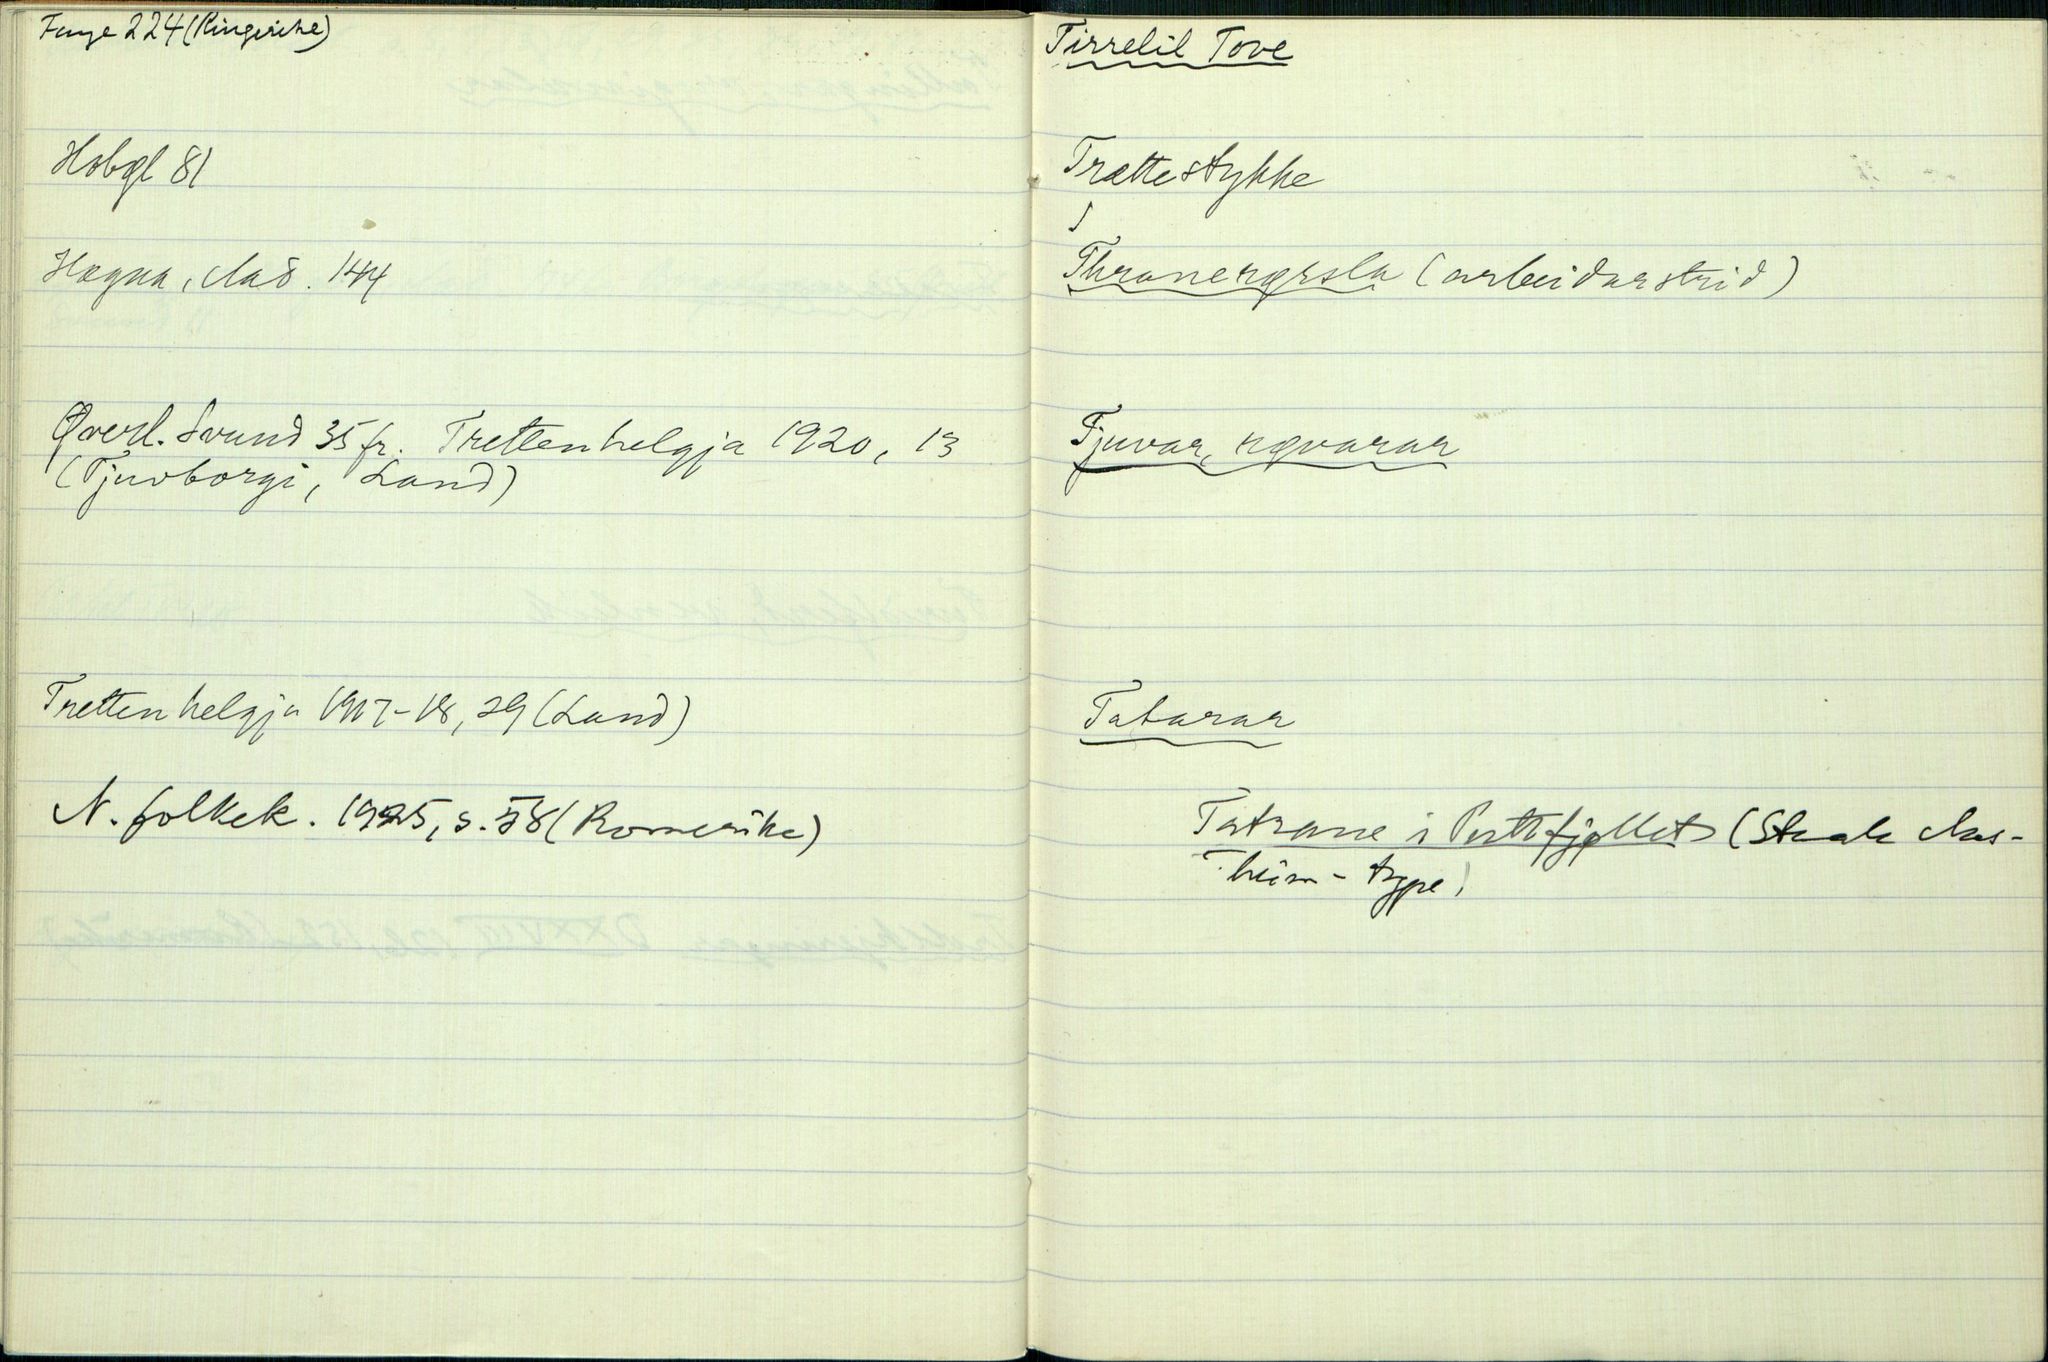 Fuge 224 (Ringerike)
Hobøl 81
Hægna, 144
Øverl. Svund 35 fr. Trettenhelgja 1920, 13
(Tjuvborgi, Land)
Trettenhelgja 1917-18, 29 (Land)
N. folkek. 1925, s. 58 (Romerike)
Tirrelil Tove
Trættestykke
Thranerørsla (arbeidarstrid)
Tjuvar, røvarar
Tatarar
Tatrane i (Sterke
-type)